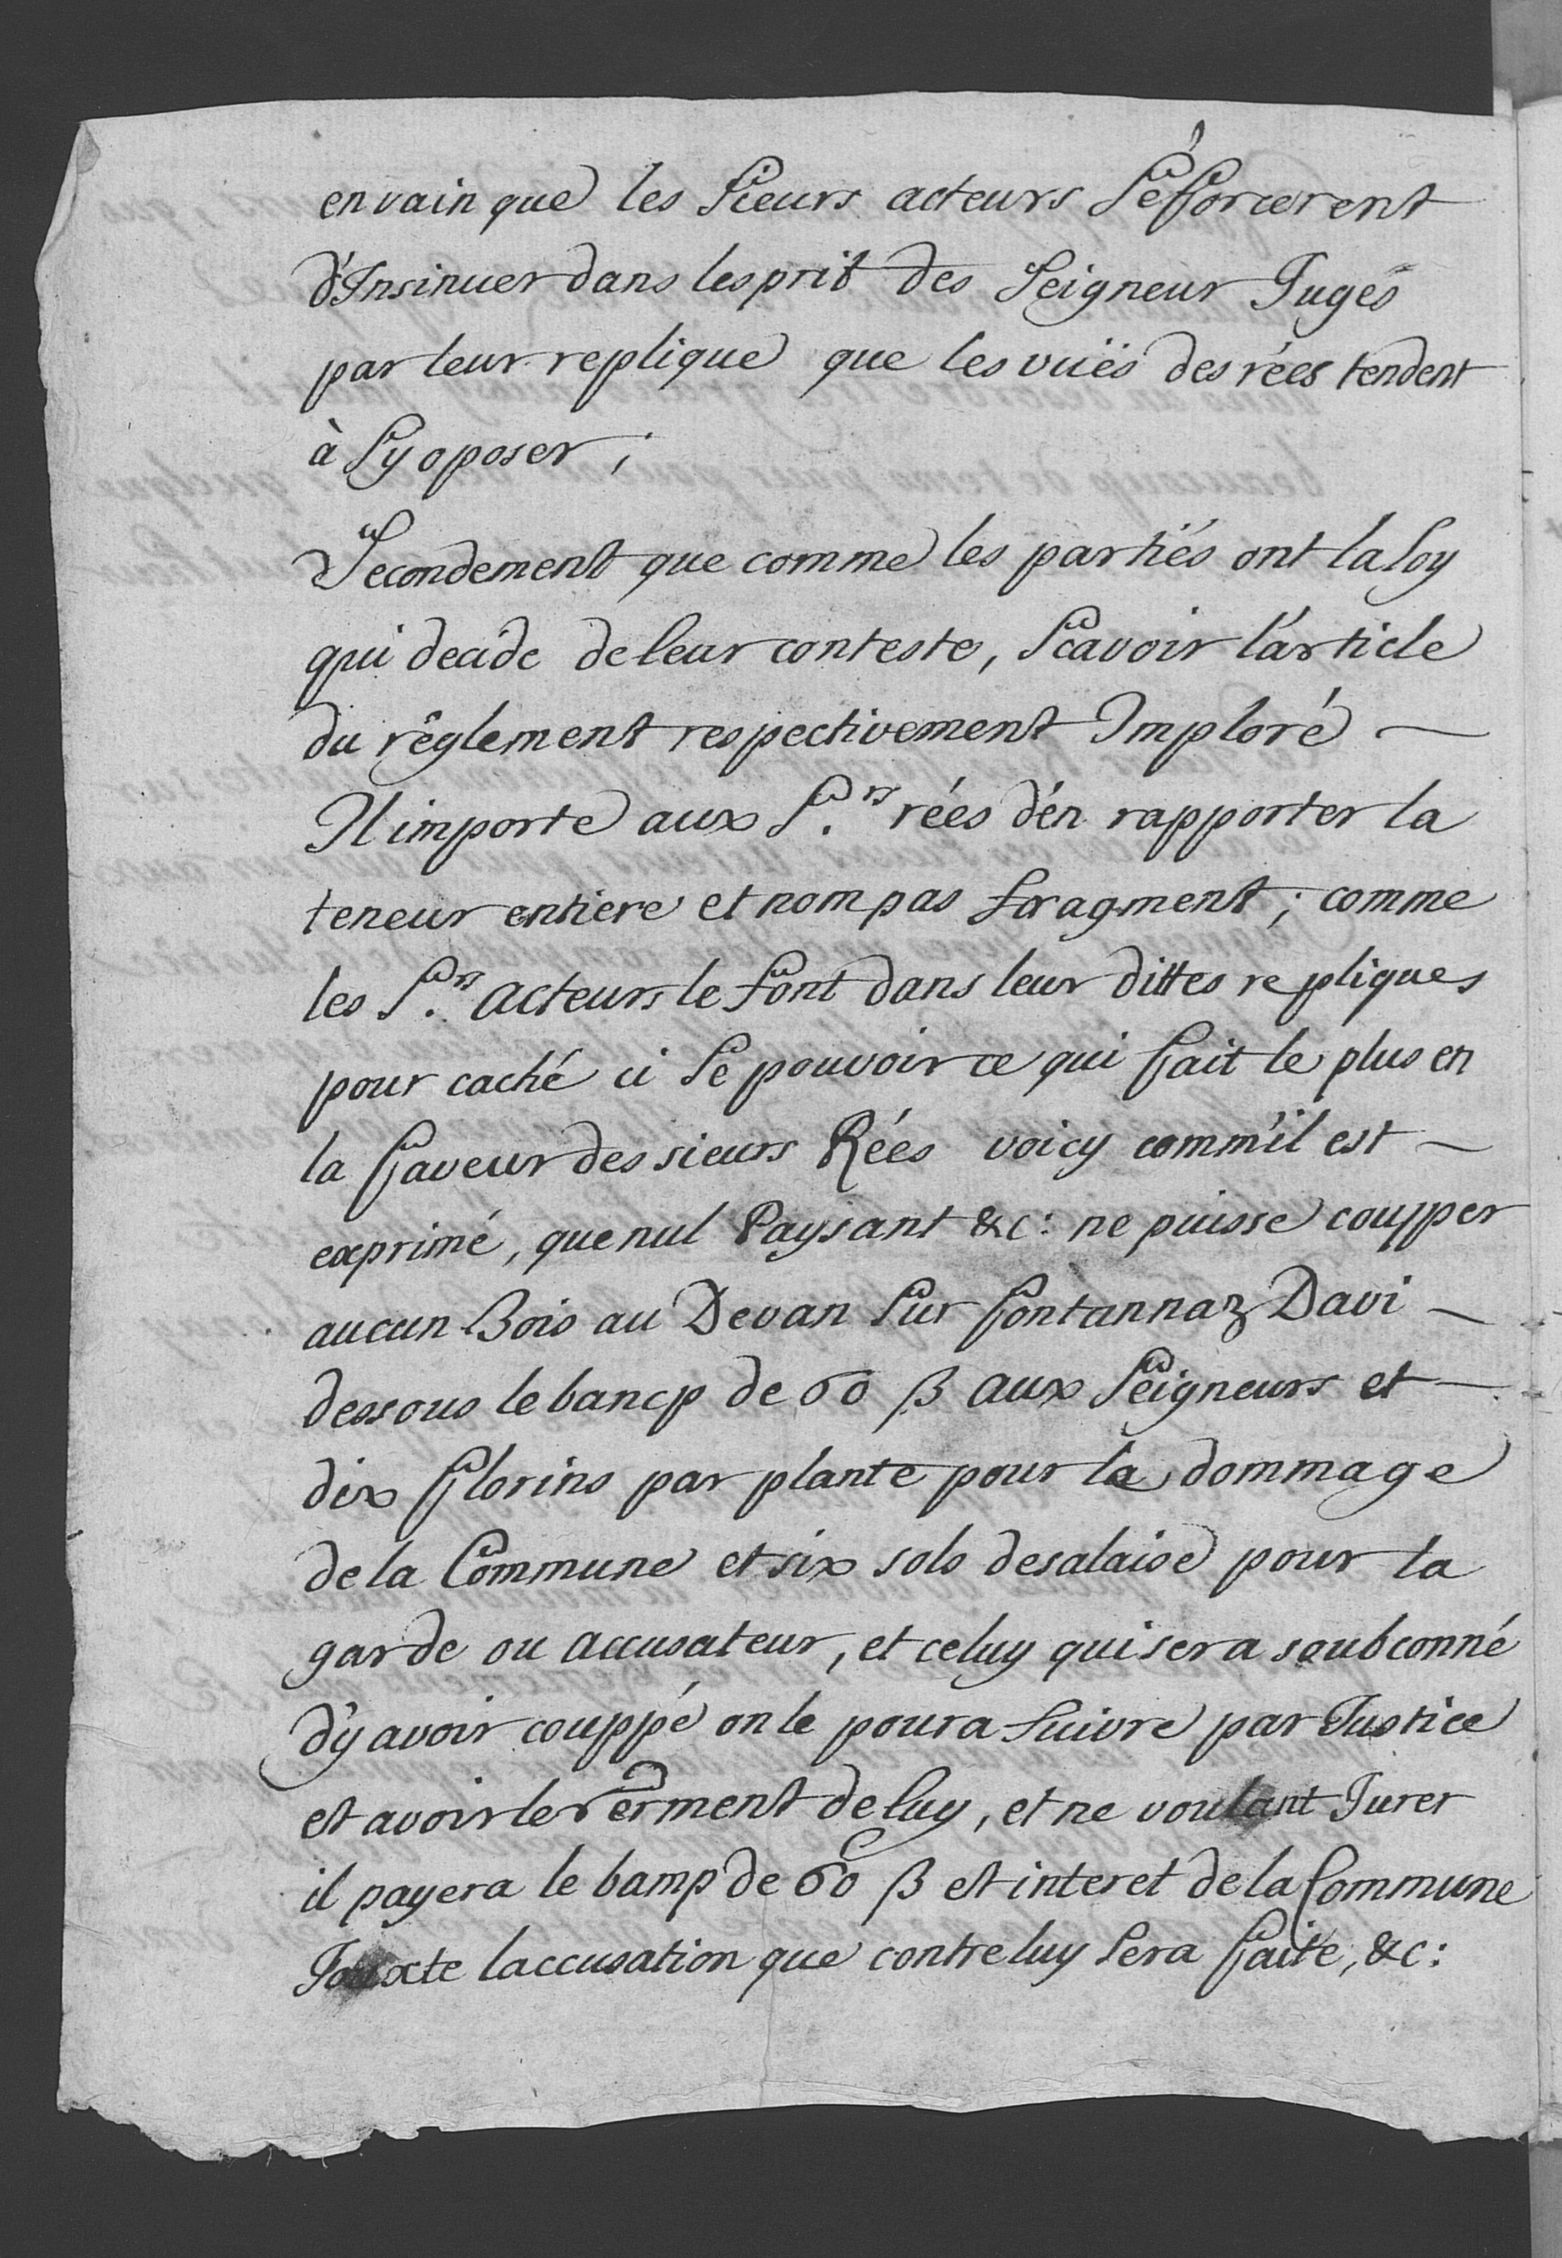 en vain que les Sieurs acteurs S'éfforcerent
d'Insinuer dans lesprit des Seigneur Juges
par leur replique que les vuës des rées tendent
à Sy oposer ;
Secondement que comme les partiés ont la loy
qui decide de leur conteste, Scavoir l'article
du rêglement respectivement Imploré —
Il importe aux S.rs rées d'én rapporter la
teneur entiere et nompas fragment ; comme
les S.rs acteurs le font dans leur dittes repliques
pour caché ci Se pouvoir ce qui fait le plus en
la faveur des sieurs Rées voicy comm'il est —
exprimé, que nul Paysant &c: ne puisse coupper
aucun Bois au Devan Sur fontannaz Davi —
dessous le bancp de 60 ß aux Seigneurs et —
dix florins par plante pour le dommage
de la Commune et six sols desalaise pour la
garde ou accusateur, et celuy qui sera soubconné
d'y avoir couppé on le poura Suivre par Justice
et avoir le Serment de luy, et ne voulant Jurer
il payera le bamp de 60 ß et interet de la Commune
Jouxte laccusation que contre luy Sera faite, &c: